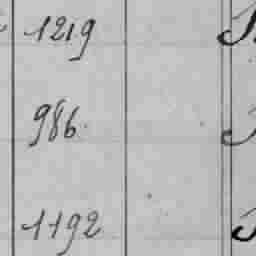 1219
986
1192